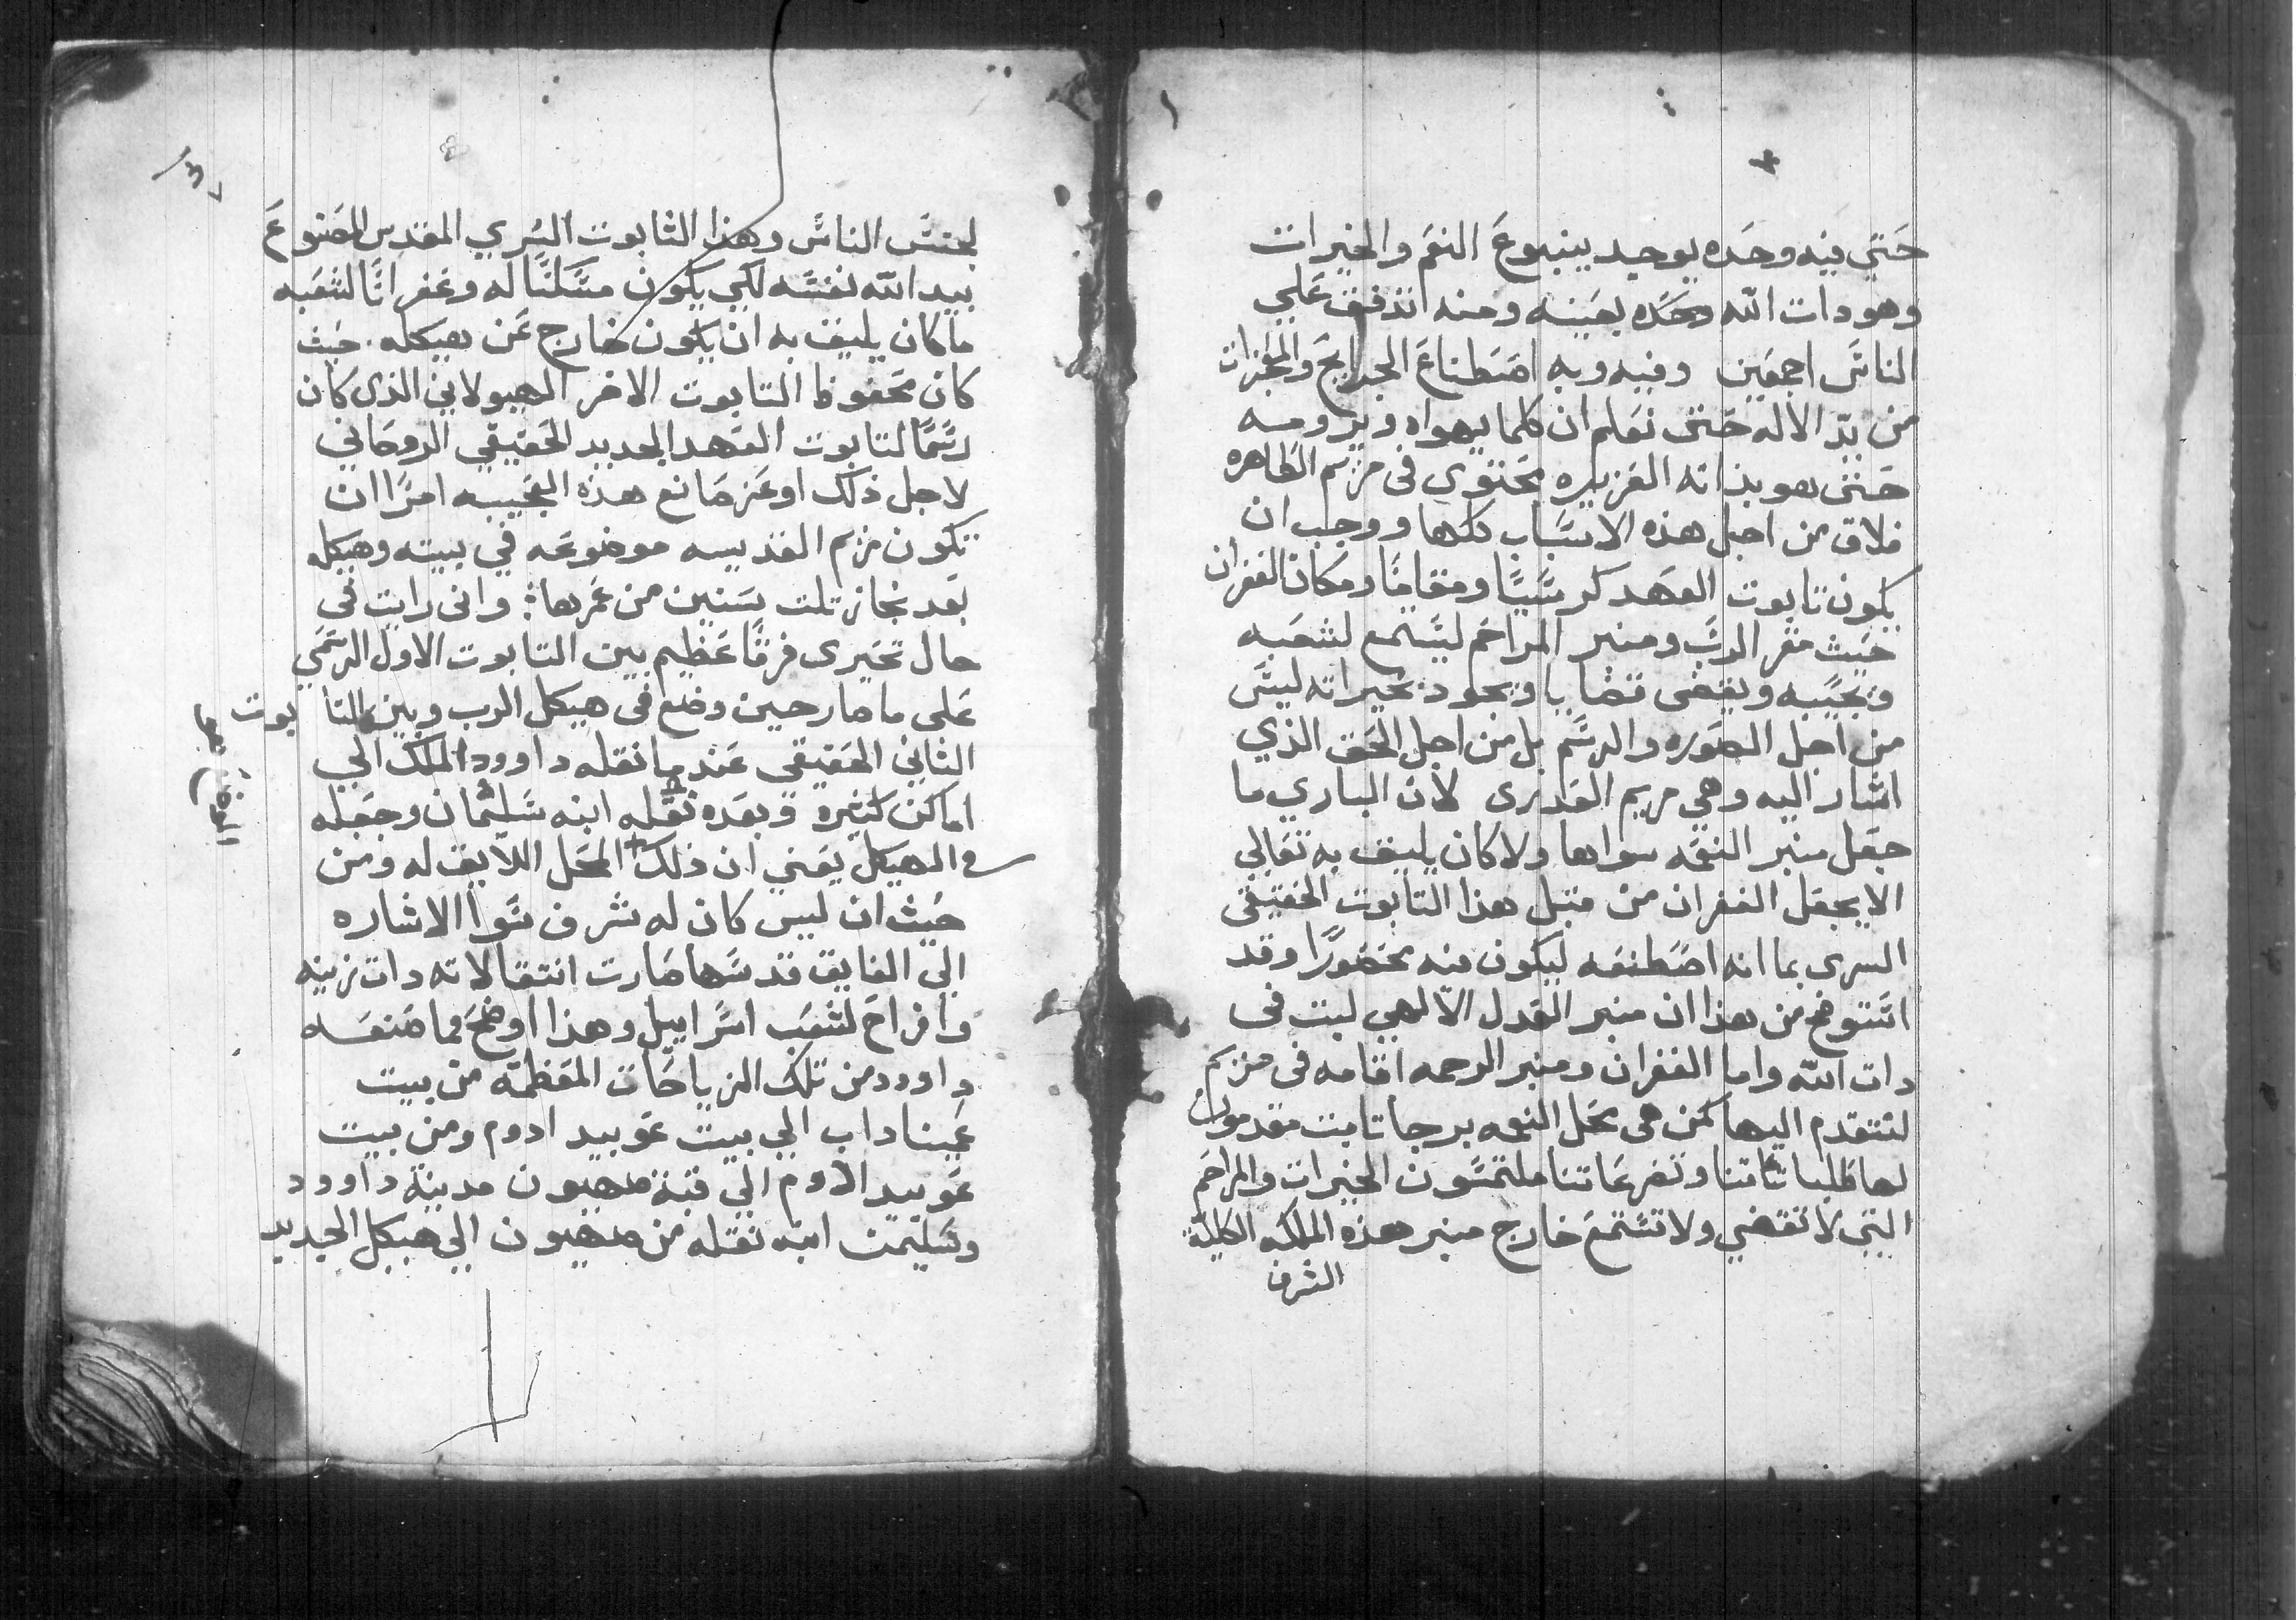 حتى فيه وحده يوجد ينبوع النعم والخيرات
وهو دات الله وحده بعينه ومنه اندفق علي
الناس اجمعين وفيه وبه اصطناع الجرايح والمعجزات
من يد الاله حتى نعلم ان كلما يهواه ويرومه
حتى هو بذاته العزيزه محتوي فى مريم الطاهره
فلاق من اجل هذه الاسباب كلها ووجب ان
يكون تابوت العهد كرسيًا ومقامًا ومكان الغفران
حيث مقر الرب ومنبر المراحم ليستمع لشعبه
ويجيبه ويقضى قضايا ويجود بخيراته ليس
من اجل الصوره والرسم بل من اجل الحق الذي
اشار اليه وهي مريم العدرى لان الباري ما
جعل منبر النعمه سواها ولا كان يليق به تعالي
الا يجعل الغفران من قبل هذا التابوت الحقيقى
السرى بما انه اصطنعه ليكون فيه محصورًا وقد
استوضح من هذا ان منبر العدل الالهي لبت فى
دات الله واما الغفران ومنبر الرحمه اقامه فى مريم
لنتقدم اليها كمن هى محل النعمه برجا تابت مقدمون
لها طلباتنا وتضرعاتنا ملتمسون الخيرات والمراحم
التي لا تقتضي ولا تستمع خارج منبر هذه الملكه الكلية
الشرف
لجنس الناس وهذا التابوت السري المقدس المصنوع
بيد الله نفسه لكي يكون مسكنًا له وغفرانًا لشعبه
ما كان يليق به ان يكون خارج عن هيكله. حيث
كان محفوظا التابوت الاخر الهيولاني الذى كان
رسمًا لتابوت العهد الجديد الحقيقي الروحاني
لاجل ذلك اوعز صانع هذه العجيبه امرًا ان
تكون مريم القديسه موضوعه في بيته وهيكله
بعد نجاز تلت سنين من عمرها: وانى رايت فى
حال تحيرى فرقًا عظيم بين التابوت الاول الرسمي
على ما صار حين وضع فى هيكل الرب وبين التابوت
الثاني الحقيقي عند ما نقله داوود الملك الي
اماكن كتيره وبعده نقله ابنه سليمان وجعله
في الهيكل يعني ان ذلك المحل اللايق له ومن
حيث ان ليس كان له شرف سوا الاشاره
الي الفايق قدسها صارت انتقالاته دات زينه
وافراح لشعب اسراييل وهذا اوضح مما صنعه
داوود من تلك الزياحات المعظمه من بيت
عينا داب الي بيت عوبيد ادوم ومن بيت
عوبيد ادوم الي قبة صهيون مدينة داوود
وسليمن ابنه نقله من صهيون الي هيكل الجديد